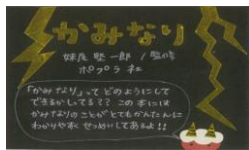 かみなり
妹尾 堅一郎 / 監修
ポプラ社
「かみなり」って どのようにして
できるかしてる?? この本には
かみなりのことがとてもかんたんに
わかりやすく せつめいしてあるよ!!